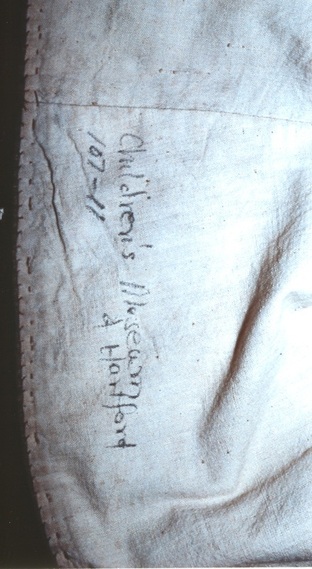 Children's Museum
of Hartford
107-11